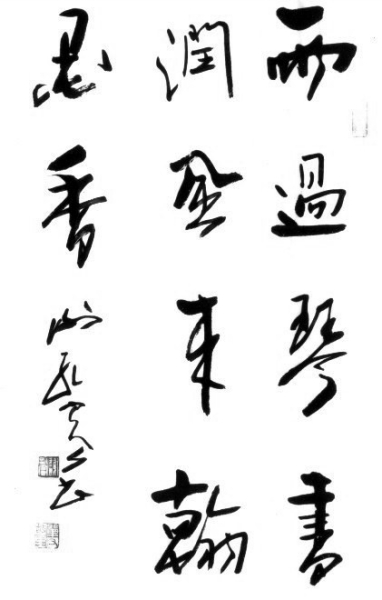 雨過琴書
潤風来翰
墨香